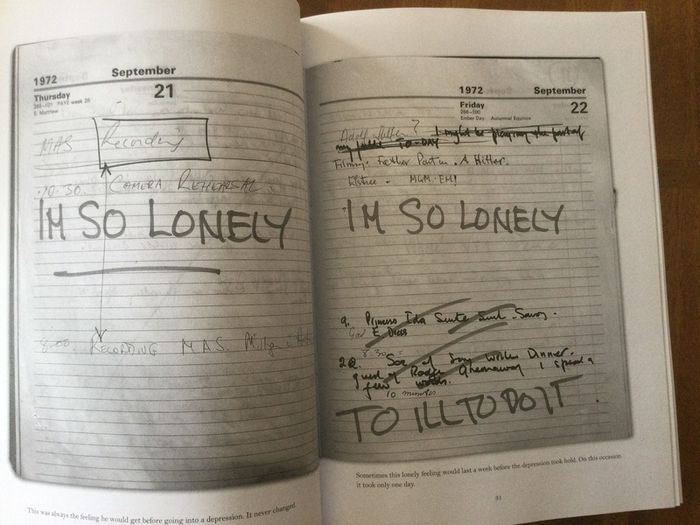 1972 September
Thursday 21
264–101 PAYE week 25
S. Matthew
MAS Recording
10.30. CAMERA REHEARSAL
IM SO LONELY
8.00. RECORDING MAS.
This was always the feeling he would get before going into a depression. It never changed.
1972 September
Friday 22
266–100
Ember Day Autumnal Equinox
Adolf Hitler? I might be playing the part of
my public TO-DAY
Filming. Father Part in. A Hitler.
MGM-EMI
IM SO LONELY
9. Princess Ida Suite Savoy.
E. Dress
8.30
22. Soc of Song Writers Dinner.
guest of Roger Greenaway I speak a
few words.
10 minutes
TO ILL TO DO IT.
Sometimes this lonely feeling would last a week before the depression took hold. On this occasion
it took only one day.
81